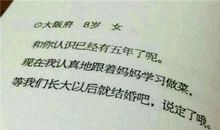 ◎大阪府 8岁 女
和你认识已经有五年了呢。
现在我认真地跟着妈妈学习做菜，
等我们长大以后就结婚吧，说定了哦。